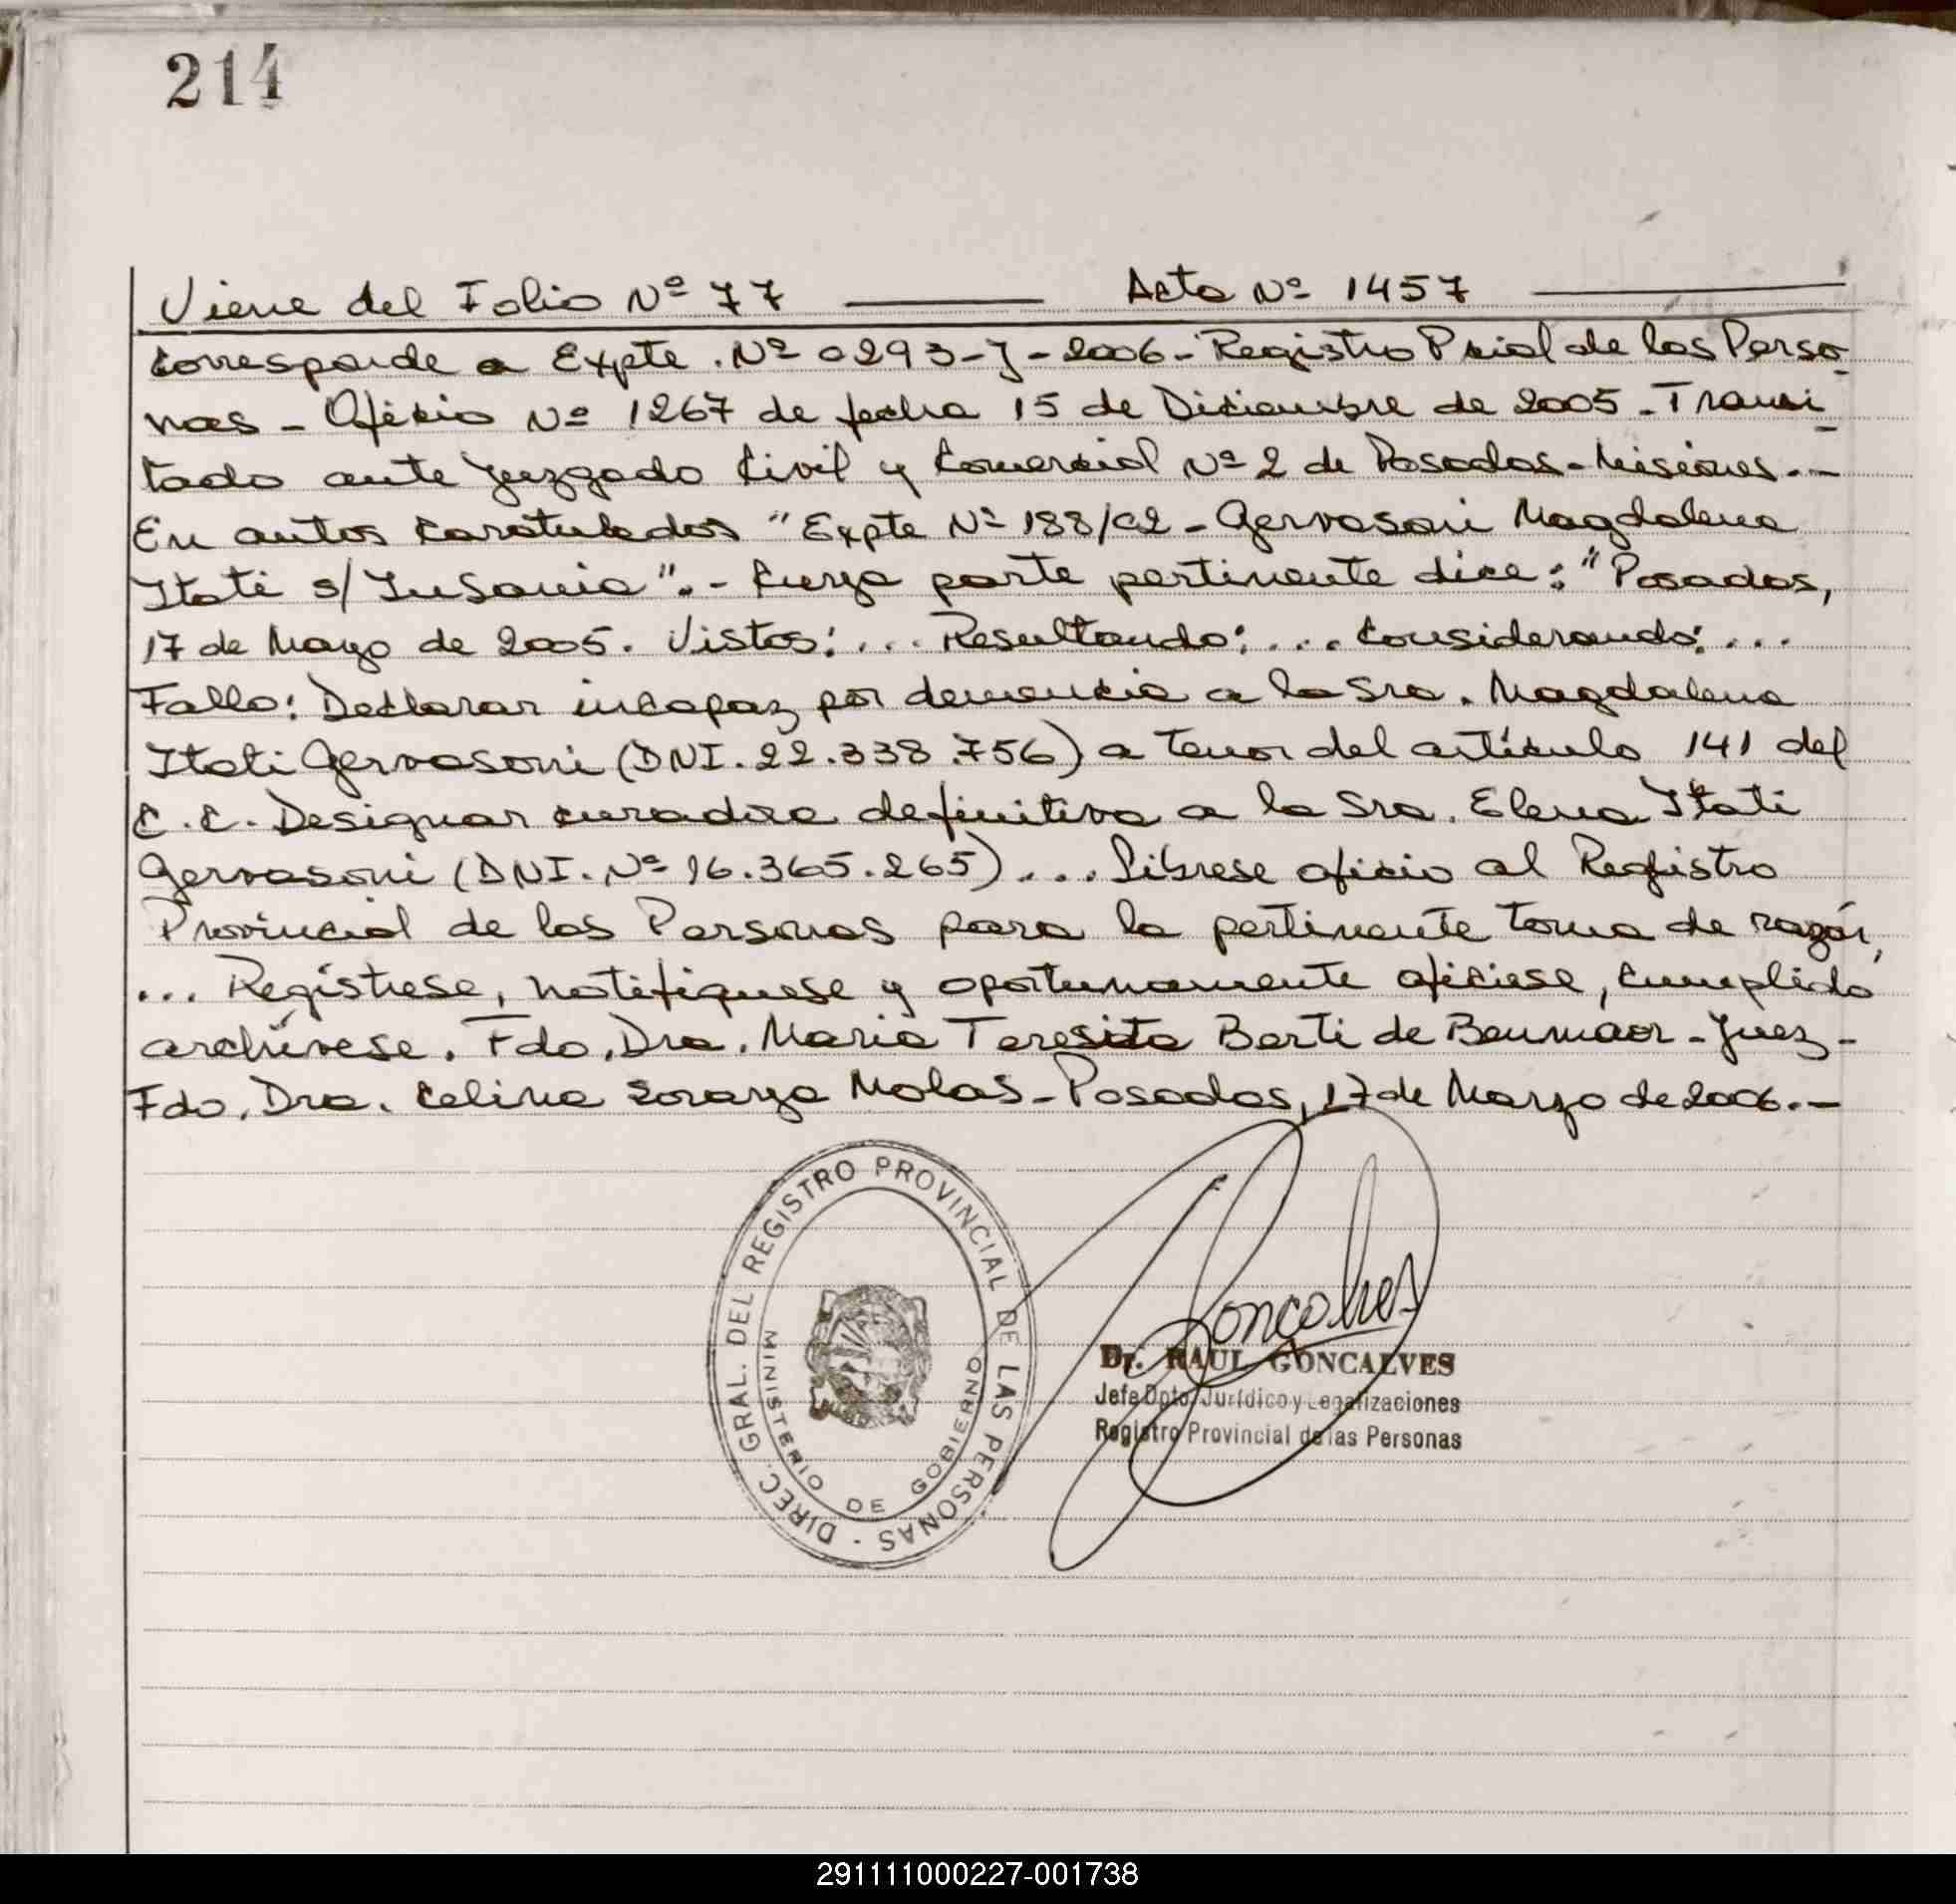 214
Viene del Folio Nº 77 ——— Acta Nº 1457 ———
Corresponde a Expte. Nº 0293-J-2006- Registro Pcial de las Perso-
nas - Oficio Nº 1267 de fecha 15 de Diciembre de 2005 - Trami-
tado ante Juzgado Civil y Comercial Nº 2 de Posadas - Misiones.-
En autos caratulados "Expte Nº 188/02 - Gervasoni Magdalena
Itati s/ Insania". - Cuya parte pertinente dice: "Posadas,
17 de Mayo de 2005. Vistos: ... Resultando: ... Considerando: ...
Fallo: Declarar incapaz por demencia a la Sra. Magdalena
Itati Gervasoni (DNI. 22.338.756) a tenor del artículo 141 del
C.C. Designar curadora definitiva a la Sra. Elena Itati
Gervasoni (DNI. Nº 16.365.265) ... Líbrese oficio al Registro
Provincial de las Personas para la pertinente toma de razón,
... Regístrese, notifiquese y oportunamente ofíciese, cumplido
archívese. Fdo. Dra. Maria Teresita Berti de Benmaor - Juez -
Fdo. Dra. Celina Molas - Posadas, 17 de Marzo de 2006.-
DIREC. GRAL. DEL REGISTRO PROVINCIAL DE LAS PERSONAS -
MINISTERIO DE GOBIERNO
Goncalves
Dr. RAUL GONCALVES
Jefe Dpto. Jurídico y Legalizaciones
Registro Provincial de las Personas
291111000227-001738